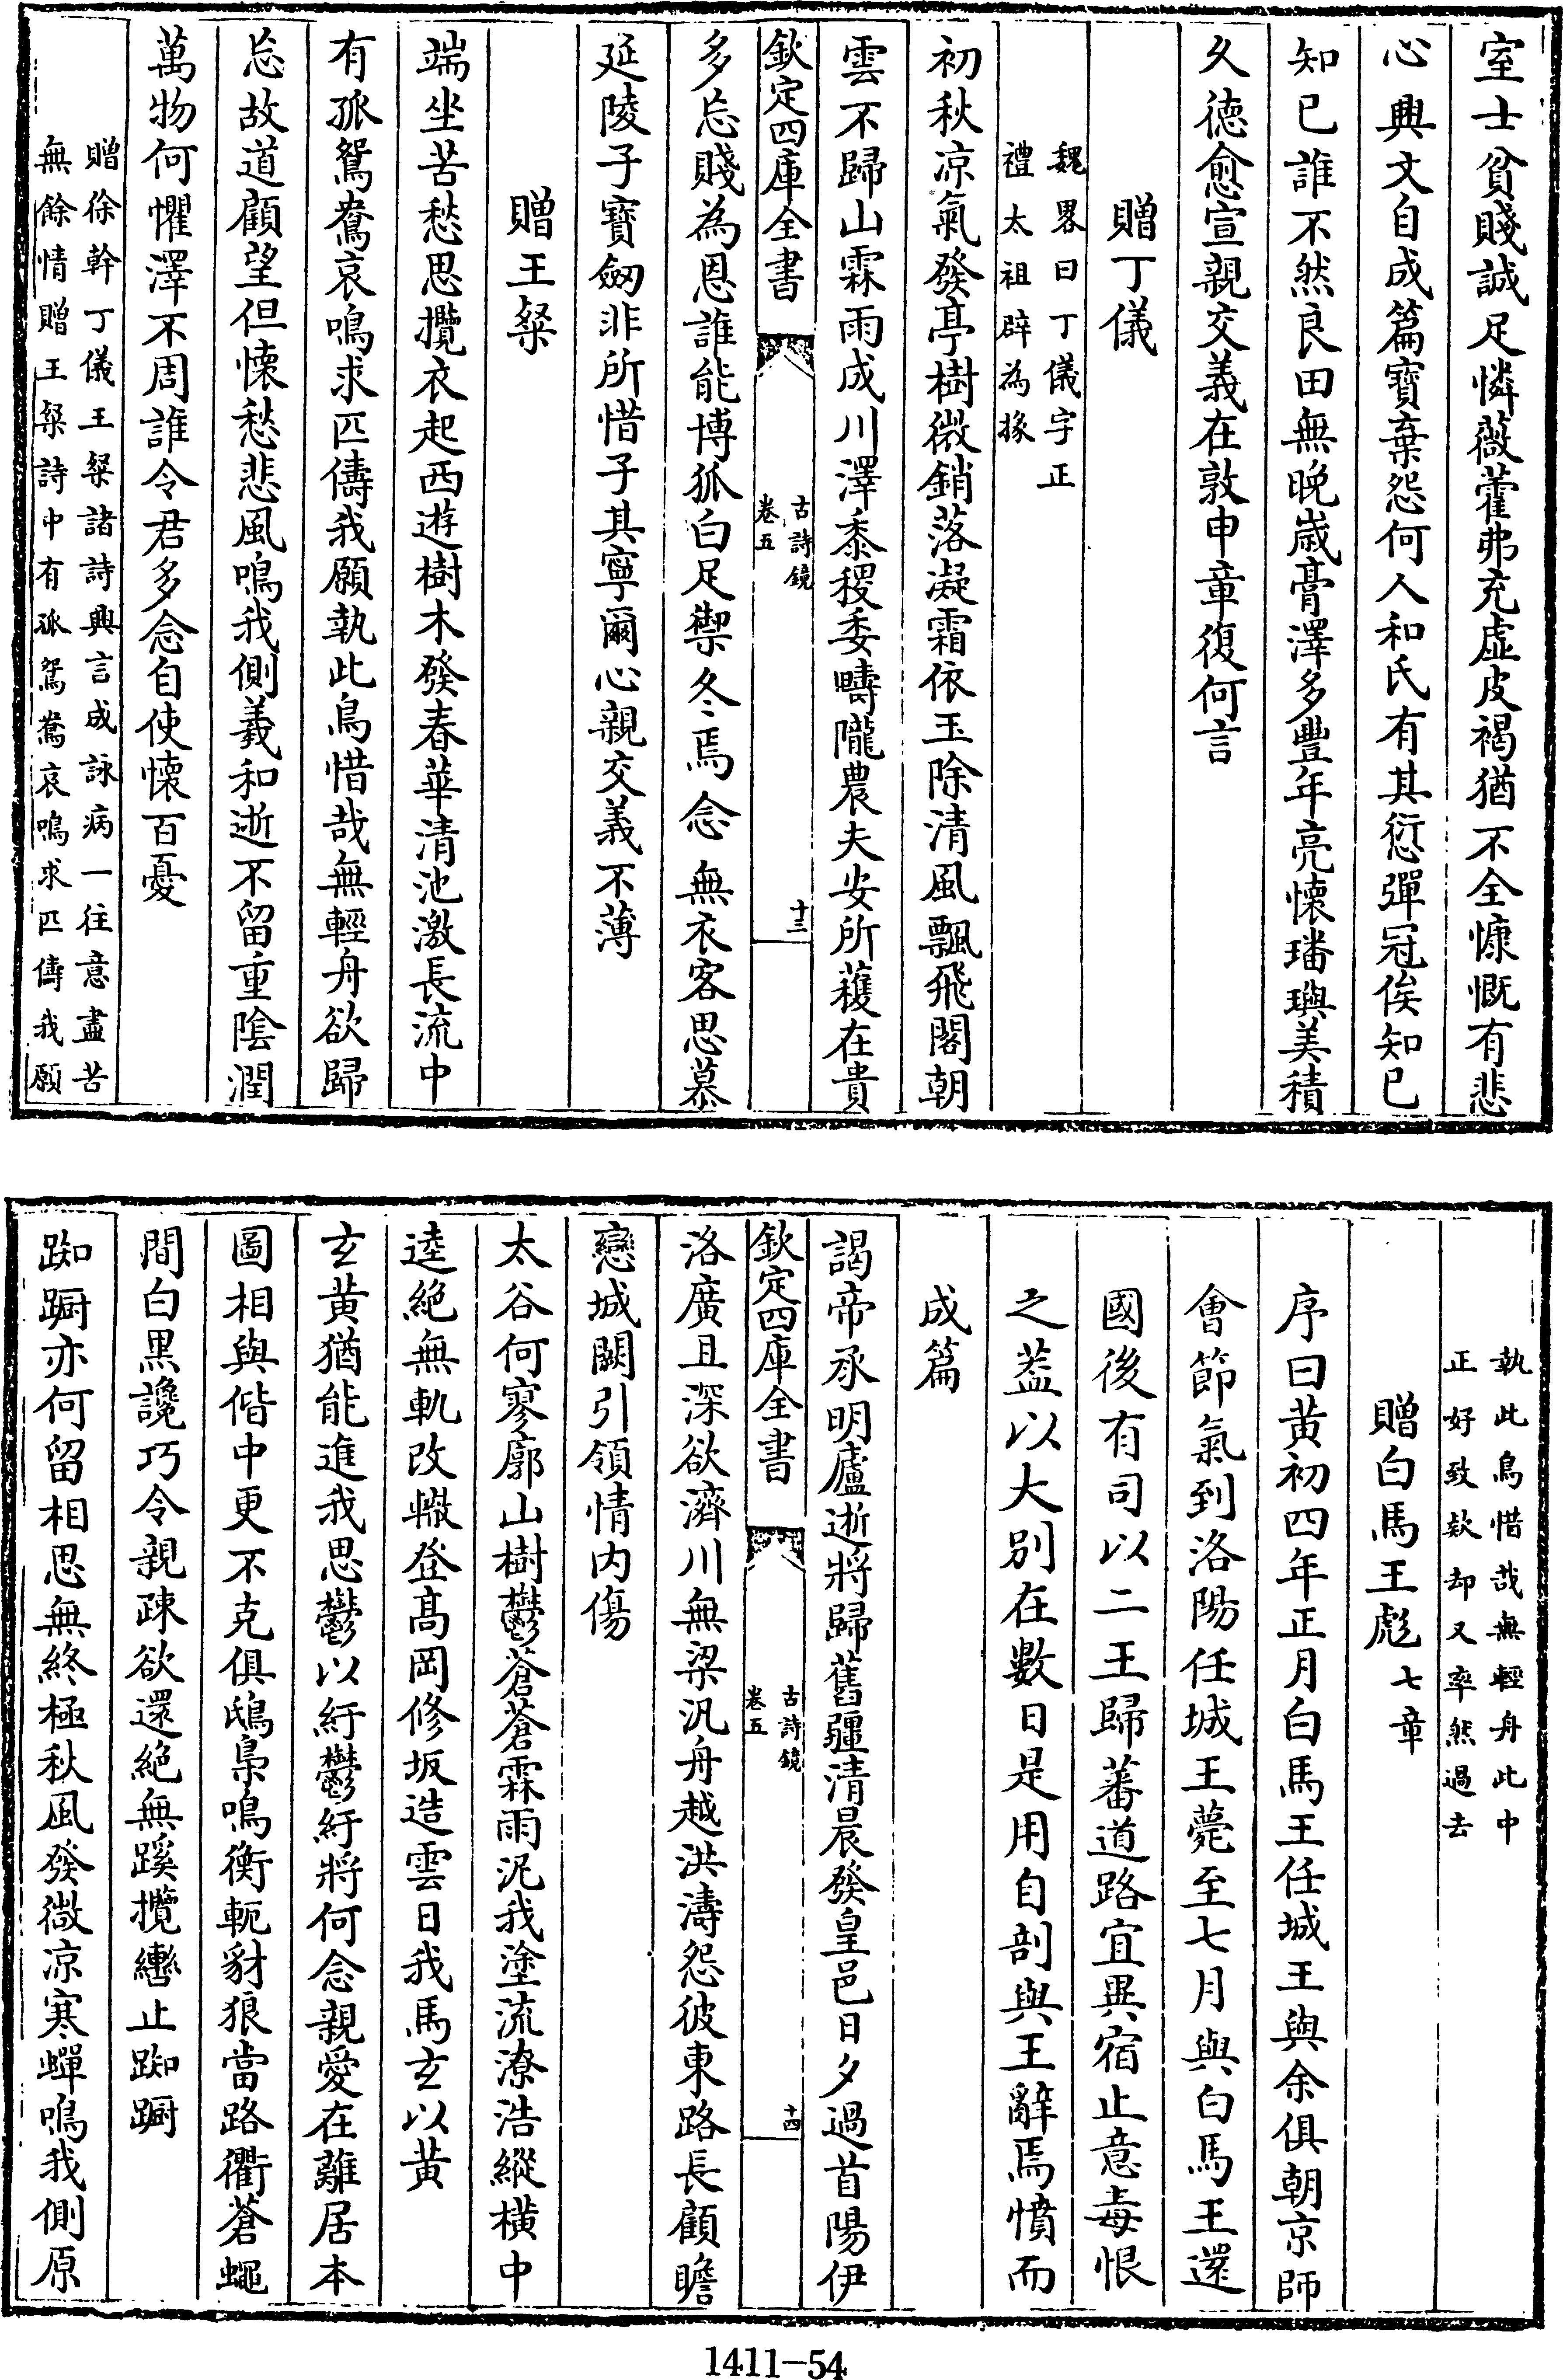 室士貧賤誠足憐薇藿弗充虛皮褐猶不全慷慨有悲
心興文自成篇寶棄怨何人和氏有其愆彈冠俟知已
知已誰不然良田無晚歲膏澤多豐年亮懷璠璵美積
久德愈宣親交義在敦申章復何言
贈丁儀
魏畧曰丁儀字正
禮太祖辟為掾
初秋凉氣發亭樹微銷落凝霜依玉除清風飄飛閣朝
雲不歸山霖雨成川澤黍稷委疇隴農夫安所穫在貴
欽定四庫全書
古詩鏡
卷五
十三
多忘賤為恩誰能博狐白足禦冬焉念無衣客思慕
延陵子寶劔非所惜子其寧爾心親交義不薄
贈王粲
端坐苦愁思攬衣起西遊樹木發春華清池激長流中
有孤鴛鴦哀鳴求匹儔我願執此鳥惜哉無輕舟欲歸
忘故道顧望但懷愁悲風鳴我側羲和逝不留重陰潤
萬物何懼澤不周誰令君多念自使懷百憂
贈徐幹丁儀王粲諸詩興言成詠病一往意盡苦
無餘情贈王粲詩中有孤鴛鴦哀鳴求匹儔我願
執此鳥惜哉無輕舟此中
正好致欵却又率然過去
贈白馬王彪七章
序曰黄初四年正月白馬王任城王與余俱朝京師
會節氣到洛陽任城王薨至七月與白馬王還
國後有司以二王歸蕃道路宜異宿止意毒恨
之葢以大別在數日是用自剖與王辭焉憤而
成篇
謁帝承明廬逝將歸舊疆清晨發皇邑日夕過首陽伊
欽定四庫全書
古詩鏡
卷五
十四
洛廣且深欲濟川無梁汎舟越洪濤怨彼東路長顧瞻
戀城闕引領情内傷
太谷何寥廓山樹鬱蒼蒼霖雨泥我塗流潦浩縱橫中
逵絶無軌改轍登高岡修坂造雲日我馬玄以黄
玄黄猶能進我思鬱以紆鬱紆將何念親愛在離居本
圖相與偕中更不克俱鴟梟鳴衡軛豺狼當路衢蒼蠅
間白黒讒巧令親踈欲還絶無蹊攬轡止踟蹰
踟蹰亦何留相思無終極秋風發微凉寒蟬鳴我側原
1411-54